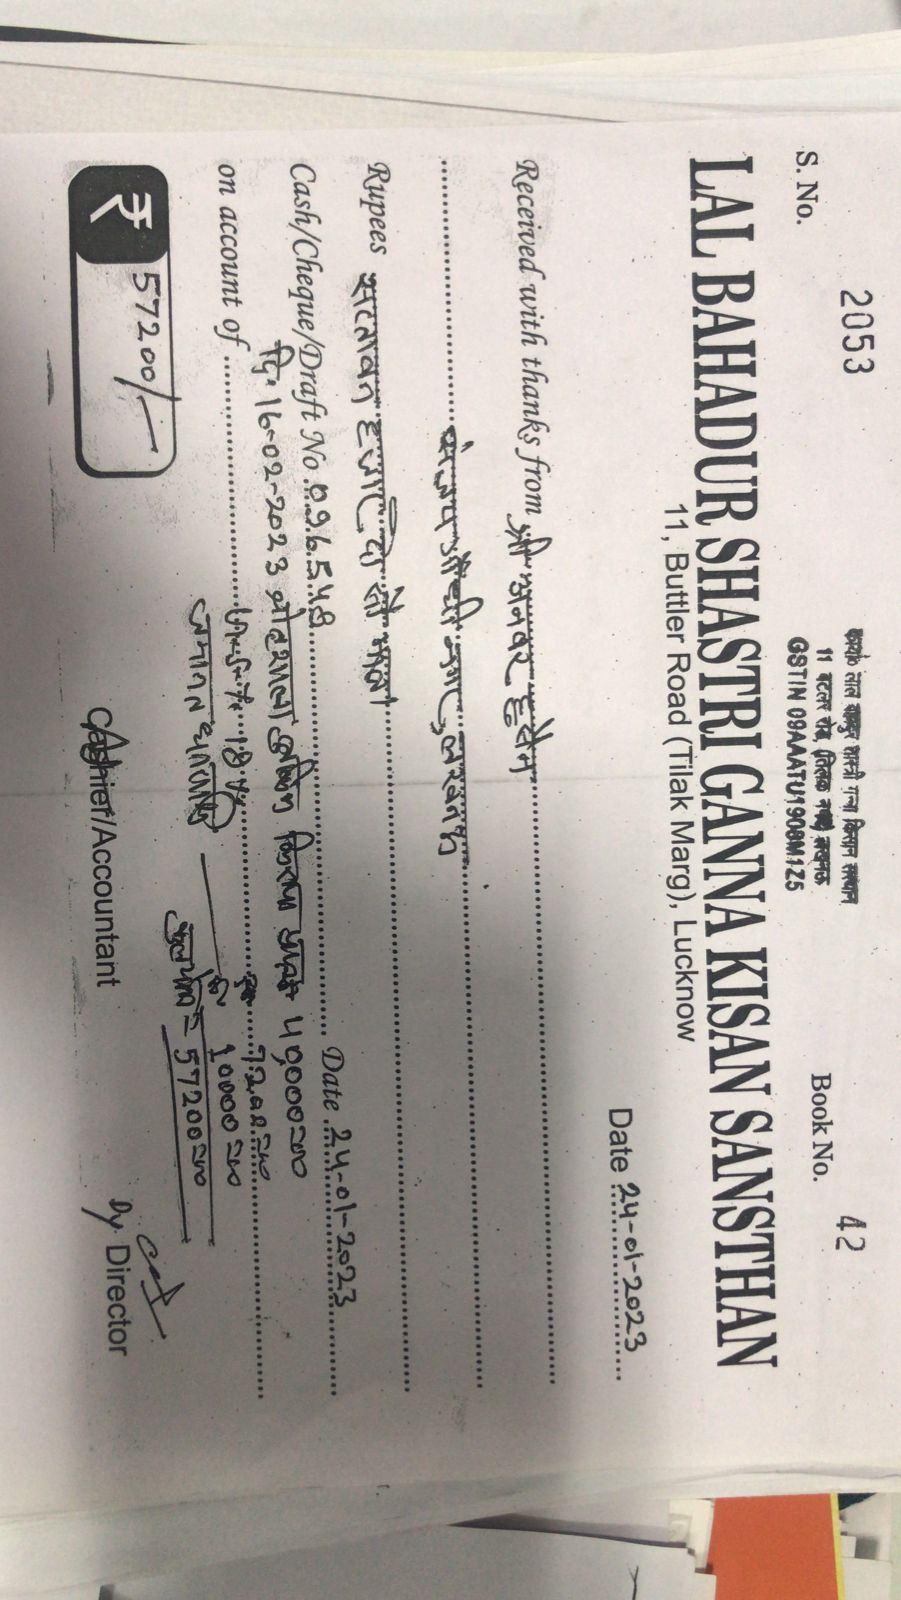 S. No. 2053
कार्या० लाल बहादुर शास्त्री गन्ना किसान संस्थान
11 बटलर रोड, (तिलक मार्ग) लखनऊ
GSTIN 09AAATU1908M1Z5
Book No. 42
LAL BAHADUR SHASTRI GANNA KISAN SANSTHAN
11, Buttler Road (Tilak Marg), Lucknow
Date 24-01-2023
Received with thanks from श्री अनवर हुसैन
संजय गाँधी नगर, लखनऊ
Rupees सत्तावन हजार दो सौ मात्र
Cash/Cheque/Draft No. 096548 Date 24-01-2023
दि. 16-02-2023 प्रेक्षागृह किराया 40,000=00
on account of जी.एस.टी. 18% 7200=00
जमानत धनराशि — 10000=00
कुल योग = 57200=00
₹ 57200/-
Cashier/Accountant
Dy. Director